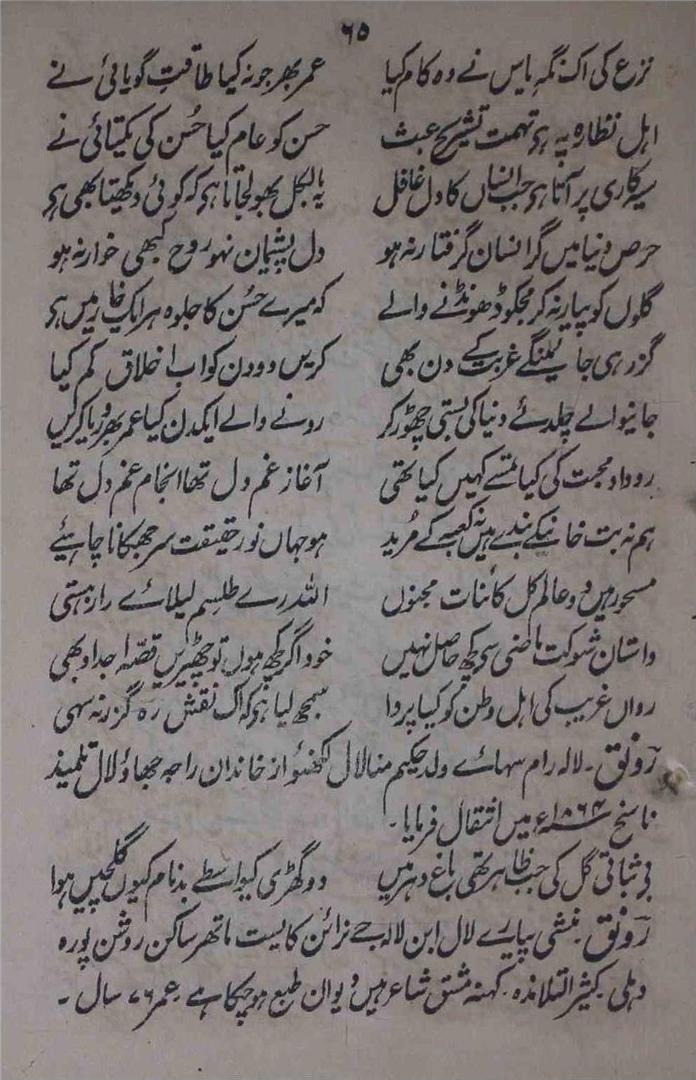 ۶۵
نزع کی اک نگہِ یاس نے وہ کام کیا عمر بھر جو نہ کیا طاقتِ گویائی نے
اہل نظارہ پہ ہے تہمت تشریح عبث حسن کو عام کیا حُسن کی یکتائی نے
سیہ کاری پر آتا ہے جب انساں کا دل غافل یہ بالکل بھول جاتا ہے کہ کوئی دیکھتا بھی ہے
حرص دنیا میں گر انسان گرفتار نہ ہو دل پشیمان نہو روح کبھی خوار نہ ہو
گلوں کو پیار نہ کر مجکو ڈھونڈنے والے کہ میرے حُسن کا جلوہ ہر ایک خار میں ہے
گزر ہی جائینگے غربت کے دن بھی کریں دو دن کو اب اخلاق کم کیا
جانیوالے چلدئے دنیا کی بستی چھوڑ کر رونے والے ایکدن کیا عمر بھر رویا کریں
روداد محبت کی کیا تمسے کہیں کیا تھی آغاز غم دل تھا انجام غم دل تھا
ہم نہ بت خانیکے بندے ہیں نہ کعبہ کے مُرید ہو جہاں نور حقیقت سر جھکانا چاہئیے
مسحور ہیں دو عالم کل کائنات مجنوں اللہ رے طلسم لیلائے راز ہستی
داستان شوکت ماضی سے کچھ حاصل نہیں خود اگر کچھ ہوں تو چھیڑیں قصّہ اجداد بھی
رواں غریب کی اہل وطن کو کیا پروا سمجھ لیا ہے کہ اک نقش رہ گزر نہ سہی
رونق۔ لالہ رام سہائے ولد حکیم منالال لکھنؤ از خاندان راجہ جھاؤ لال تلمیذ
ناسخ ۱۸۶۴ء میں انتقال فرمایا۔
بے ثباتی گل کی جب ظاہر تھی باغ دہر میں دو گھڑی کیواسطے بدنام کیوں گلچیں ہوا
رونق۔ منشی پیارے لال ابن لالہ جے نرائن کایست ماتھر ساکن روشن پورہ
دہلی۔ کثیر التلامذہ۔ کہنہ مشق شاعر ہیں دیوان طبع ہو چکا ہے عمر ۷۶ سال۔